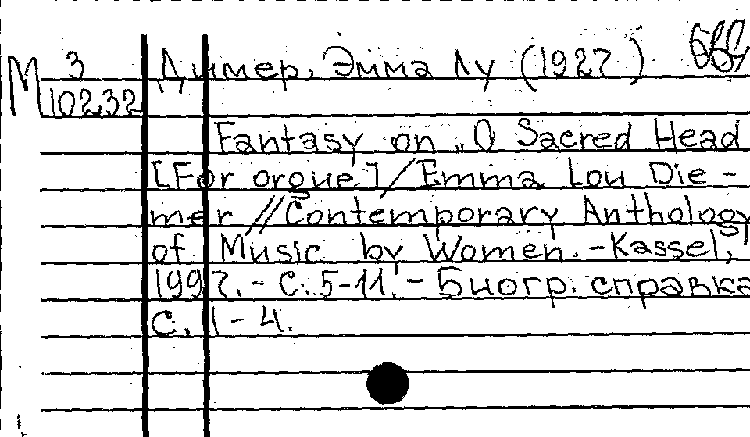 М 3 Димер, Эмма Лу (1927 )
10232
Fantasy on „O Sacred Head
[For orgue] / Emma Lou Die-
mer // Contemporary Anthology
of Music by Women. - Kassel,
1997. - С. 5-11. - Биогр. справка
с. 1-4.